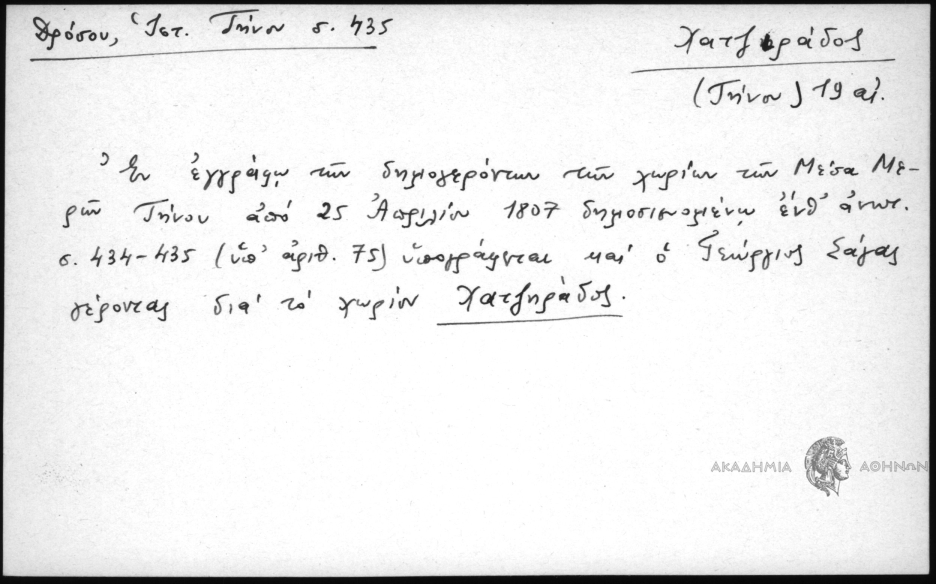 Δρόσου, Ἱστ. Τήνου σ. 435
Χατζηράδος
(Τήνου) 19 αἰ.
Ἐν ἐγγράφῳ τῶν δημογερόντων τῶν χωρίων τῶν Μέσα Με-
ρῶν Τήνου ἀπό 25 Ἀπριλίου 1807 δημοσιευομένῳ ἔνθ' ἀνωτ.
σ. 434-435 (ὑπ' ἀριθ. 75) ὑπογράφεται καί ὁ Γεώργιος Σάγας
γέροντας διά τό χωρίον Χατζηράδος.
ΑΚΑΔΗΜΙΑ ΑΘΗΝΩΝ